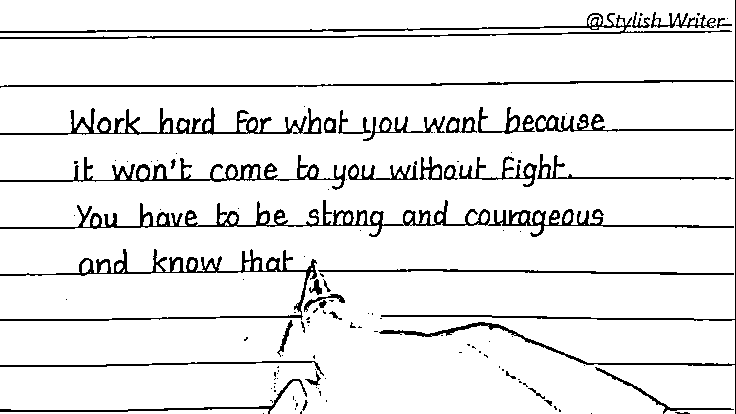 @Stylish Writer
Work hard for what you want because
it won't come to you without fight.
You have to be strong and courageous
and know that